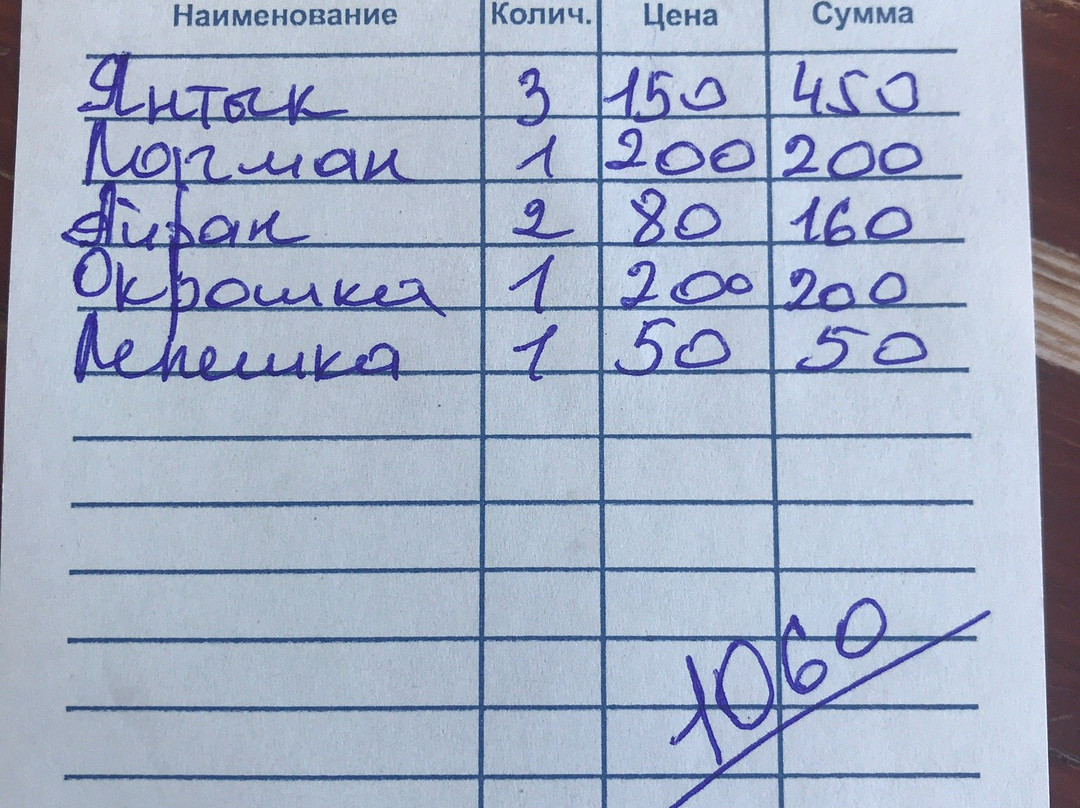 Наименование Колич. Цена Сумма
Янтык 3 150 450
Лагман 1 200 200
Айран 2 80 160
Окрошка 1 200 200
Лепешка 1 50 50
1060